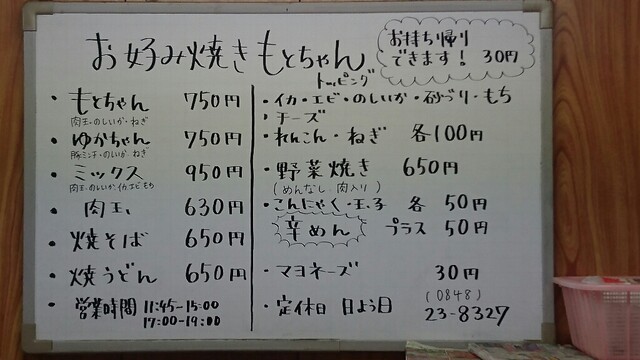 お好み焼きもとちゃん
お持ち帰り
できます! 30円
・もとちゃん 750円
肉玉・のしいか・ねぎ
・ゆかちゃん 750円
豚ミンチ・のしいか・ねぎ
・ミックス 950円
肉玉・のしいか・イカ・エビ・もち
・肉玉 630円
・焼そば 650円
・焼うどん 650円
・営業時間 11:45-15:00
17:00-19:00
トッピング
・イカ・エビ・のしいか・砂づり・もち
・チーズ
・れんこん・ねぎ 各100円
・野菜焼き 650円
(めんなし 肉入り)
・こんにゃく・玉子 各 50円
辛めん プラス 50円
・マヨネーズ 30円
・定休日 日よう日
(0848)
23-8327